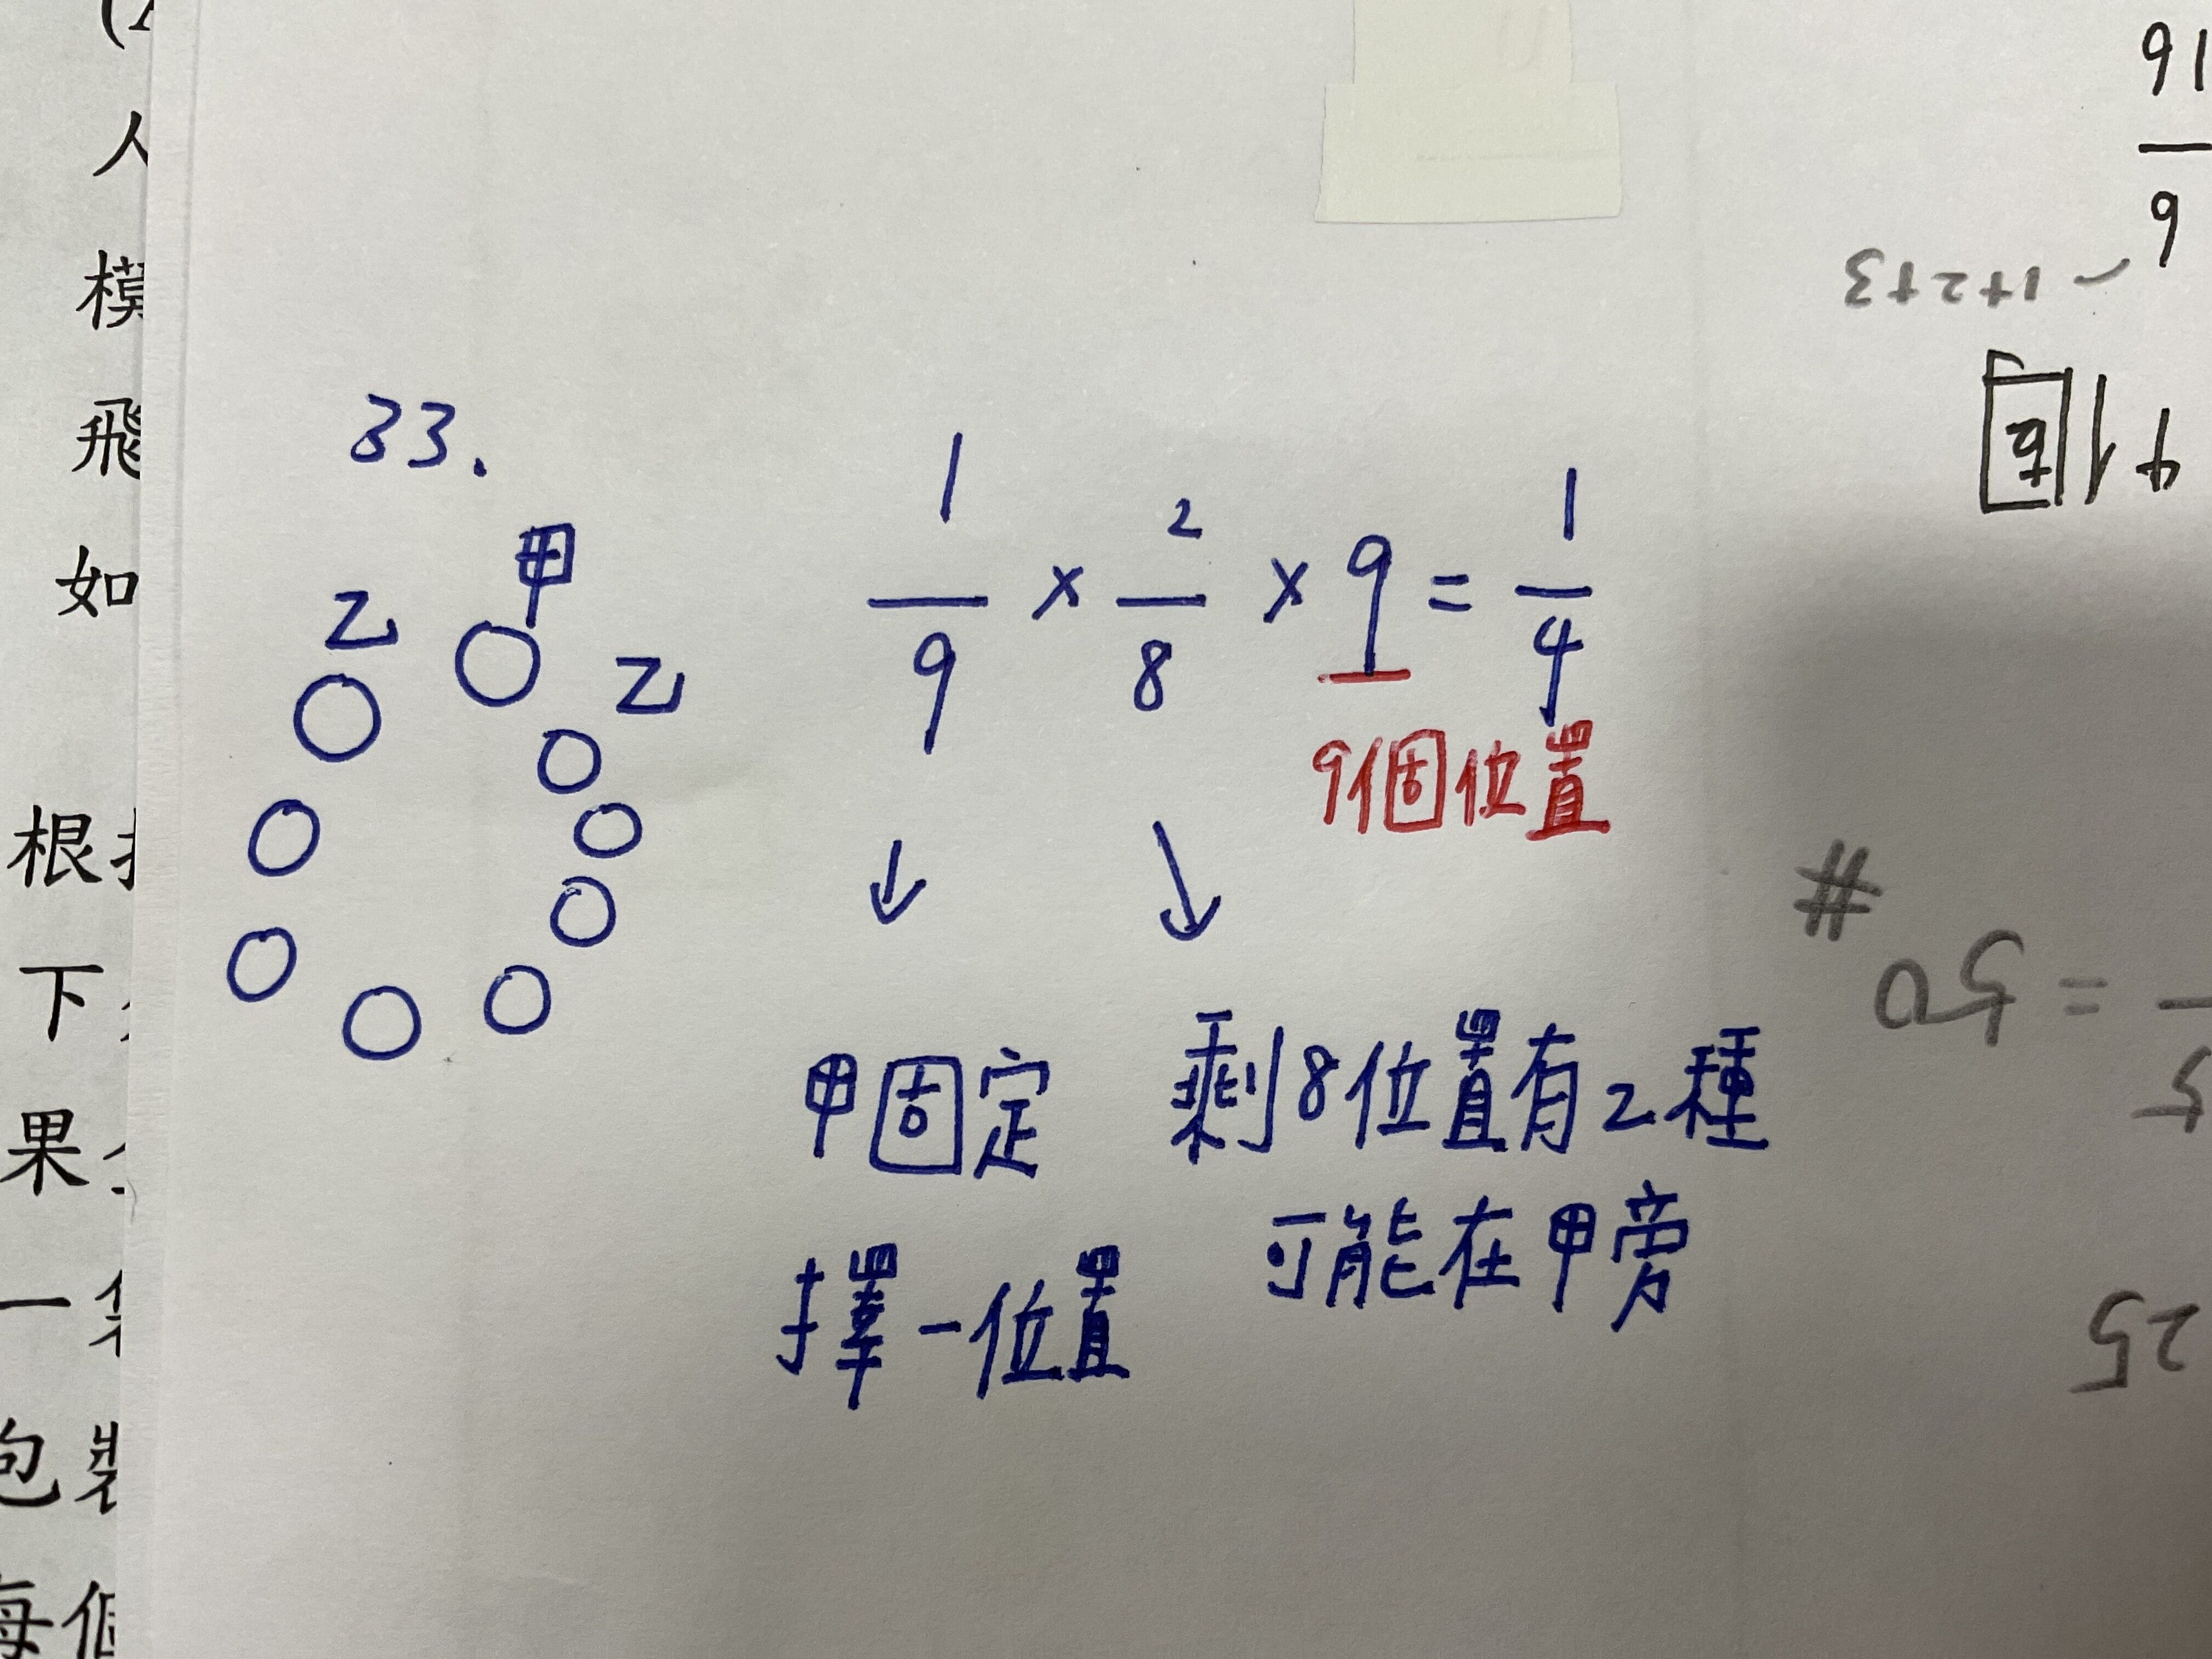 人
模
飛
如
根
下
果
一
包裝
每個
33.
甲
乙
乙
1/9 × 2/8 × 9 = 1/4
9個位置
↓ ↓
甲固定
擇一位置
剩8位置有2種
可能在甲旁
16
9
1+2+3
= 50 #
5
25